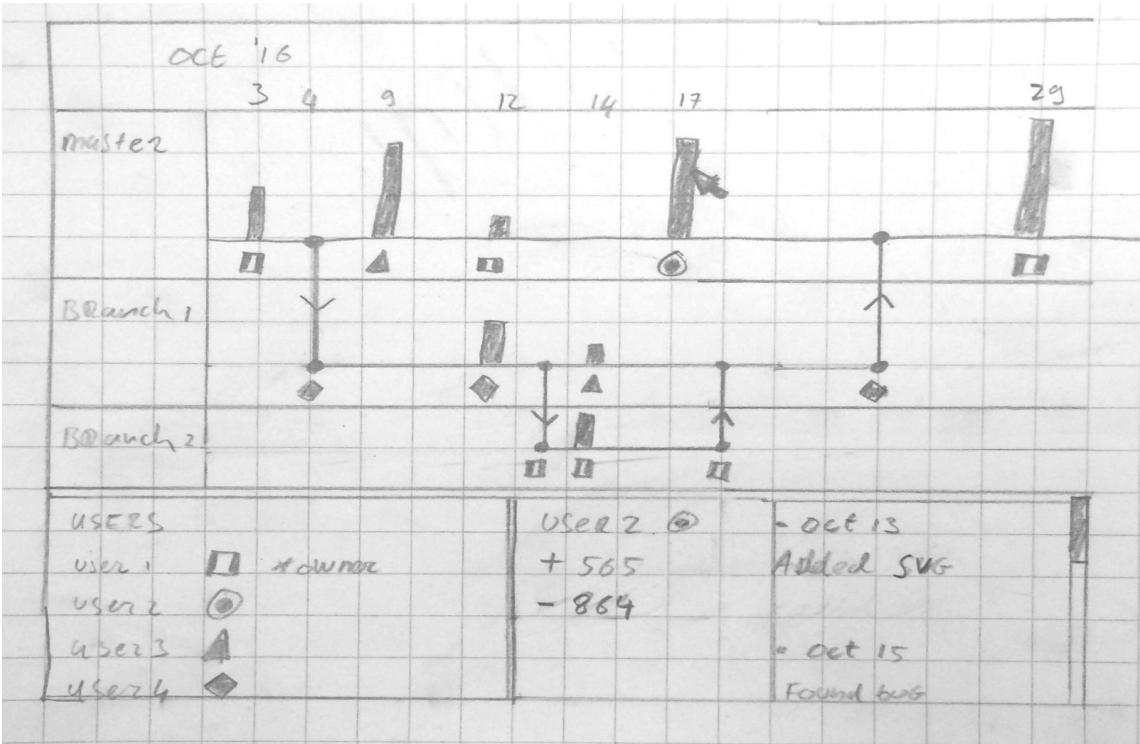 Oct '16
3 4 9 12 14 17 29
master
Branch 1
Branch 2
USERS
user 1 *owner
user 2
user 3
user 4
User 2
+ 565
- 864
- Oct 13
Added SVG
- Oct 15
Found bug